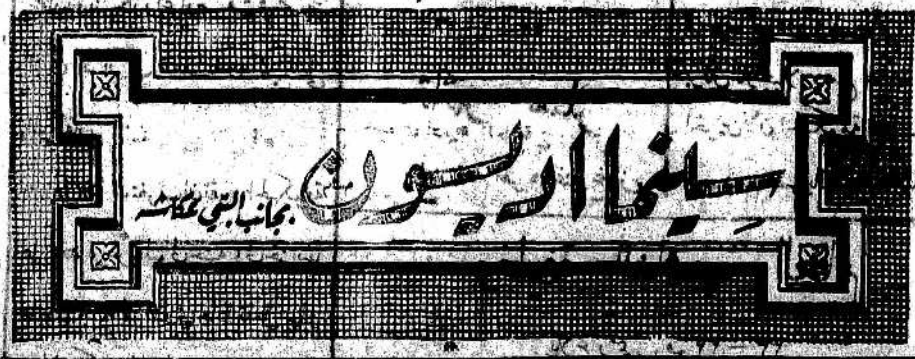 سينما اديسون بجانب النبي عكاشه